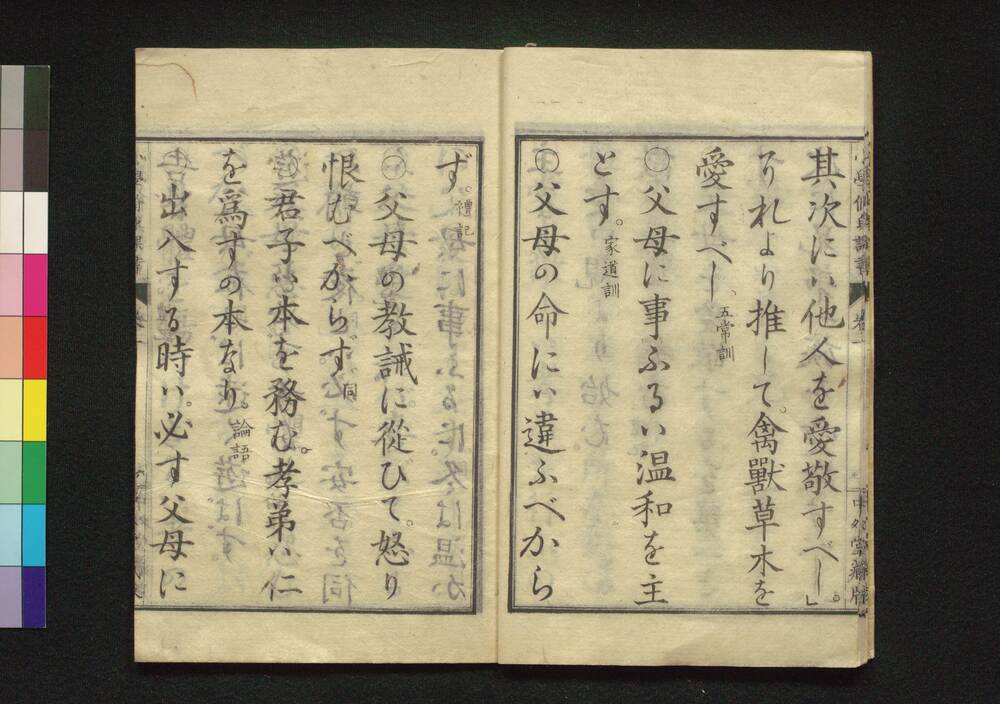 其次にハ他人を愛敬すべし」。
それより推して。禽獸草木を
愛すべし。五常訓
○父母に事ふるハ温和を主
とす。家道訓
○父母の命にハ違ふべから
ず。禮記
○父母の教誡に從ひて。怒り
恨むべからず。同
君子ハ本を務む。孝弟ハ仁
を爲すの本なり。論語
出入する時ハ。必す父母に